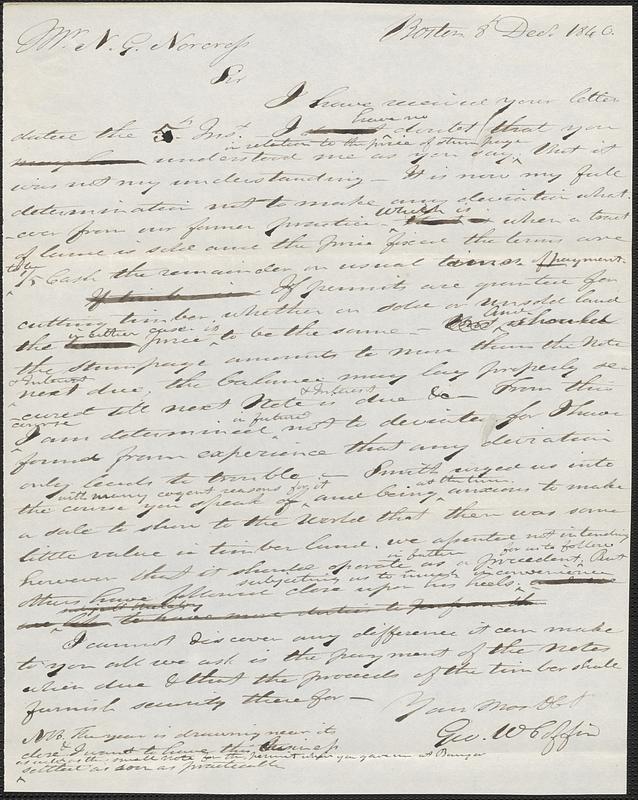 Boston 8th Decr 1840.
Mr. N. G. Norcross
Sir
I have received your letter
have no
dated the 5th Inst. I doubt that you
in relation to the price of stumpage
understood me as you say, But it
was not my understanding — It is now my full
determination not to make any deviation what-
which is
-ever from our former practice — when a tract
of land is sold and the price fixed the terms are
to be
1/5 Cash the remainder on usual terms of payment
If permits are granted for
cutting timber, whether on sold or unsold land
in either case is and
the price to be the same — should
the stumpage amounts to more than the Note
& Interest
next due, the balance may lay properly se-
& Interest
-cured till next Note is due &c — From this
course in future
I am determined not to deviate, for I have
found from experience that any deviation
only leads to trouble — Smith urged us into
with many cogent reasons for it at the time
the course you speak of and being anxious to make
a sale to show to the World that there was some
little value in timber land, we assented not intending
for us to follow
however that it should operate as a precedent, But
subjecting us to much inconvenience
others have followed close upon his heels,
I cannot discover any difference it can make
to you all we ask is the payment of the Notes
when due & that the proceeds of the timber shall
furnish security therefor —
Your mos Obt
Geo. W Coffin
N.B. The year is drawing near its
close & I want to have this business
as well as the small note for the permit when you gave me at Bangor
settled as soon as practicable